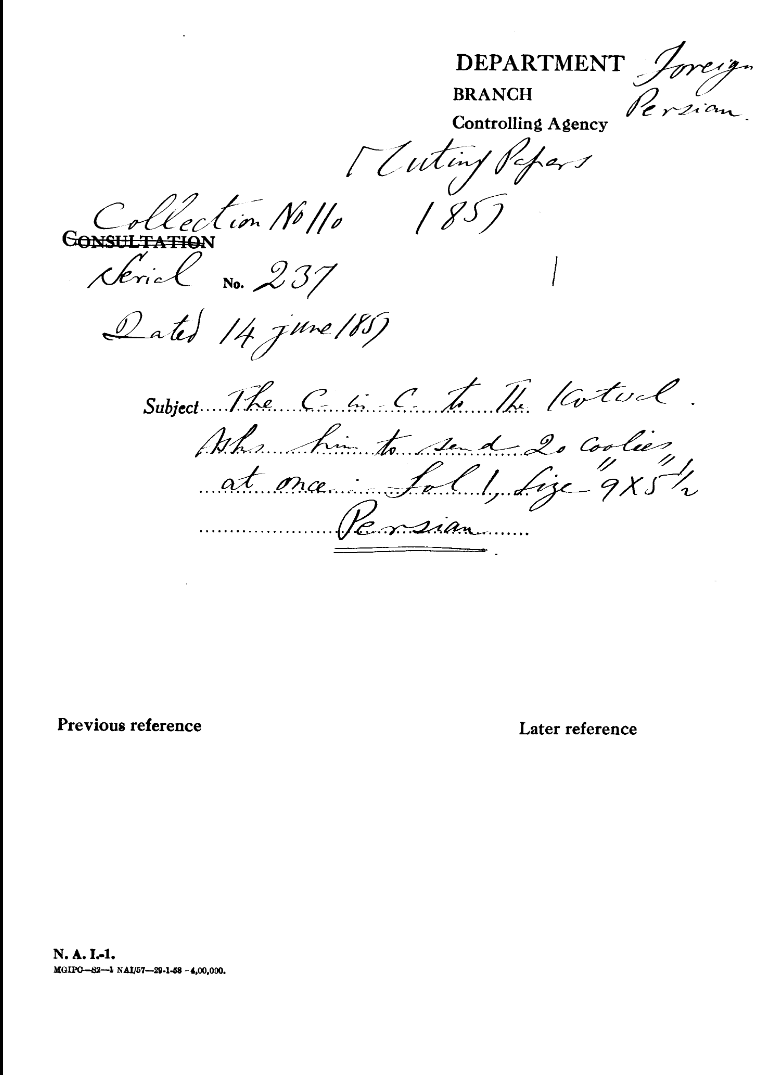 DEPARTMENT Foreign
BRANCH Persian.
Controlling Agency
Mutiny Papers
Collection No 110 1857
CONSULTATION
Serial No. 237
Dated 14 june 1857
Subject The C in C to The Kotwal.
Asks him to send 20 coolies
at once. Fol 1, Size - 9" X 5 1/2"
Persian
Previous reference Later reference
N. A. I.-1.
MGIPC—S2—1 NAI/57—29-1-58 -4,00,000.